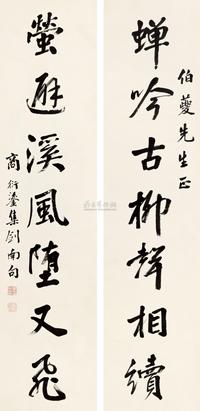 伯夔先生正
蝉吟古柳聲相續
螢避溪風墮又飛
商衍鎏集劍南句